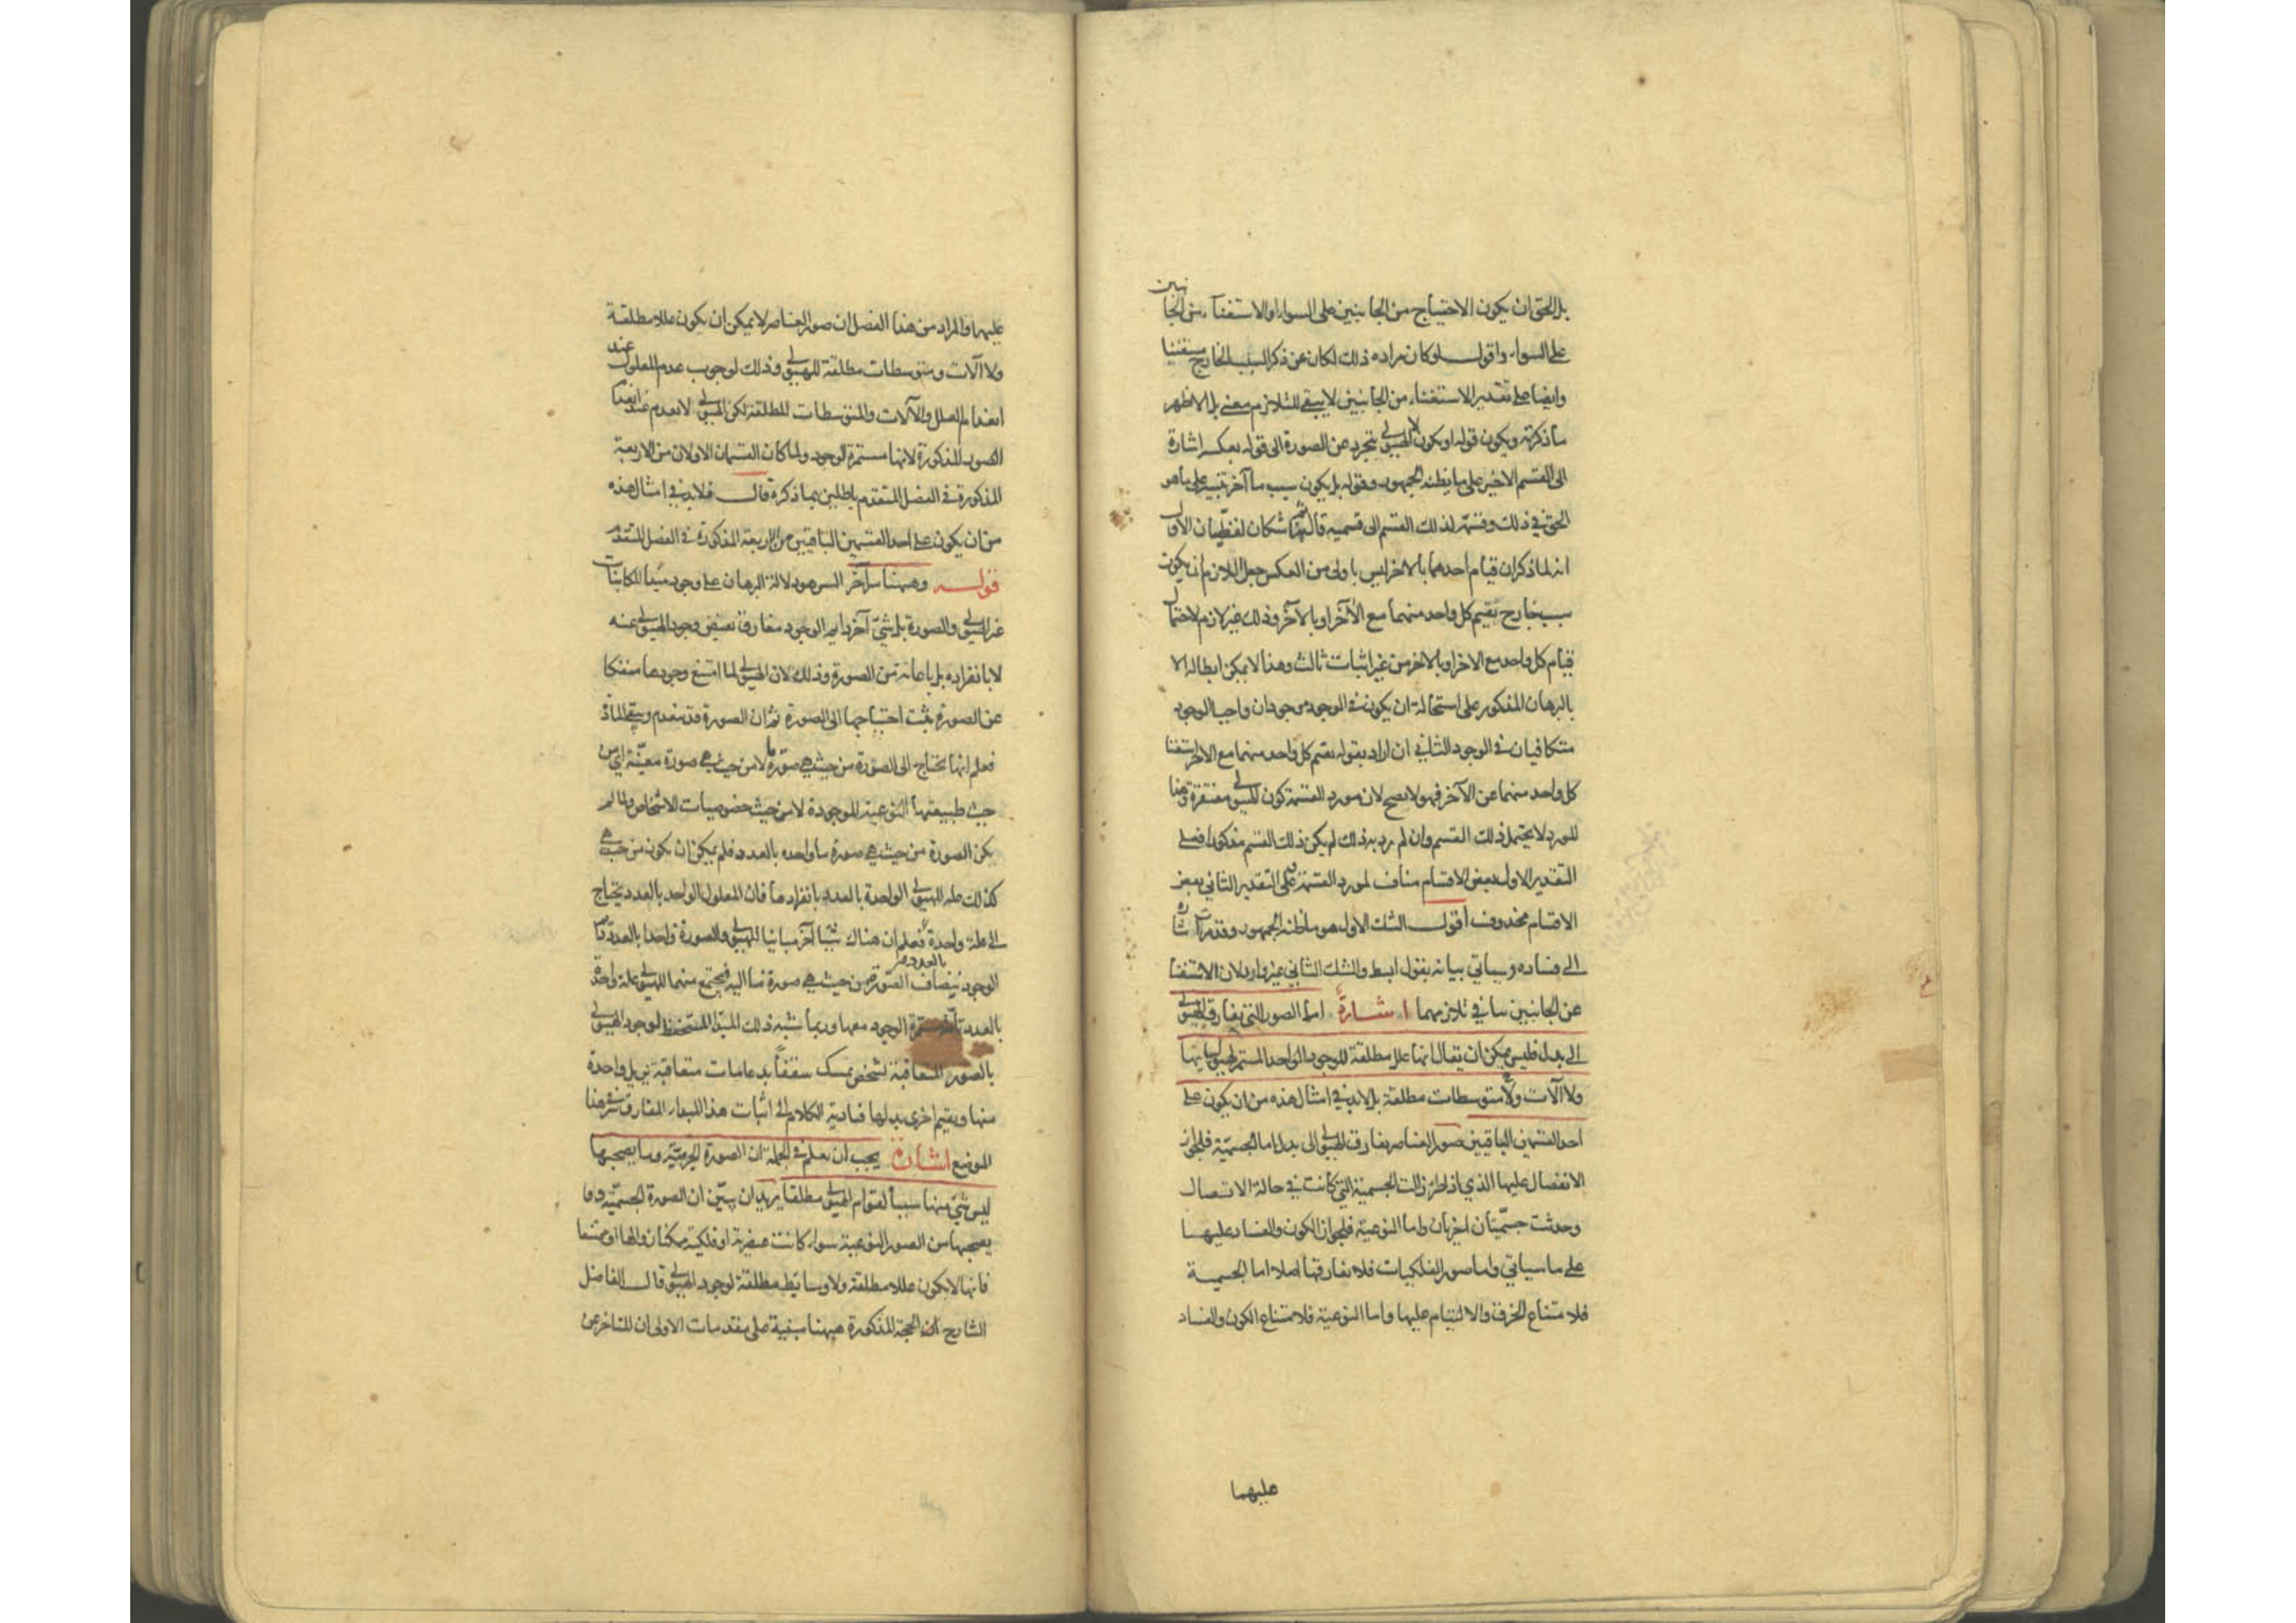 بل الحق ان يكون الاحتياج من الجانبين على السواء او الاستغناء من الجانبين
على السواء واقول لو كان مراده ذلك لكان عن ذكر السبب الخارج مستغنيا
وايضا على تقدير الاستغناء من الجانبين لا يبقى للتلازم معنى بل الاظهر
ما ذكرته ويكون قوله او يكون لا الهيولى تتجرد عن الصورة الى قوله بعكسه اشارة
الى القسم الاخير على ما يظنه الجمهور وقوله بل يكون سبب ما آخر تنبيه على ما هو
الحق في ذلك وقسمة لذلك القسم الى قسميه قال ثم ههنا شكان لفظيان الاول
انه لما ذكر ان قيام احدهما بالاخر ليس باولى من العكس جعل اللازم ان يكون
سبب خارج يقيم كل واحد منهما مع الآخر او بالآخر وذلك غير لازم لاحتمال
قيام كل واحد مع الاخر او بالاخر من غير اثبات ثالث وهذا لا يمكن ابطاله الا
بالبرهان المذكور على استحالة ان يكون في الوجود موجودان واجبا الوجود
متكافيان في الوجود الثاني ان اراد بقوله يقيم كل واحد منهما مع الاخر استغنا
كل واحد منهما عن الآخر فهو لا يصح لان مورد القسمة كون الهيولى مفتقرة وهذا
المورد لا يحتمل ذلك القسم وان لم يرد به ذلك لم يكن ذلك القسم مذكورا فعلى
التقدير الاول بعض الاقسام مناف لمورد القسمة وعلى التقدير الثاني بعض
الاقسام محذوف اقول الشك الاول هو ما ظنه الجمهور وقد مرت اشارة
الى فساده وسياتي بيانه بقول ابسط والشك الثاني غير وارد لان الاستغنا
عن الجانبين ينافي تلازمهما اشارة اما الصور التي تفارق الهيولى
الى بدل فليس يمكن ان يقال انها علل مطلقة للوجود الواحد المستمر لهيولياتها
ولا آلات ولا متوسطات مطلقة بل لابد في امثال هذه من ان يكون على
احد القسمين الباقيين صور العناصر يفارق الهيولى الى بدل اما الجسمية فلجواز
الانفصال عليها الذي اذا طرأ زالت الجسمية التي كانت في حالة الاتصال
وحدثت جسميتان اخريان واما النوعية فلجواز الكون والفساد عليها
على ما سياتي واما صور الفلكيات فلا يفارقها اصلا اما الجسمية
فلامتناع الخرق والالتيام عليها واما النوعية فلامتناع الكون والفساد
عليهما
عليهما والمراد من هذا الفصل ان صور العناصر لا يمكن ان يكون عللا مطلقة
ولا آلات ومتوسطات مطلقة للهيولى وذلك لوجوب عدم المعلول عند
انعدام العلل والآلات والمتوسطات المطلقة لكن الهيولى لا تعدم عند انعدام
الصور المذكورة لانها مستمرة الوجود ولما كان القسمان الاولان من الاربعة
المذكورة في الفصل المتقدم باطلين بما ذكره قال فلابد في امثال هذه
من ان يكون على احد القسمين الباقيين من الاربعة المذكورة في الفصل المتقدم
قوله وههنا سر آخر السر هو دلالة البرهان على وجود مبدأ للكائنات
غير الهيولى والصورة بل شئ آخر دايم الوجود مفارق تفيض وجود الهيولى عنه
لا بانفراده بل باعانة من الصورة وذلك لان الهيولى لما امتنع وجودها منفكا
عن الصورة يثبت احتياجها الى الصورة ثم ان الصورة قد تنعدم ويبقى المادة
فعلم انها تحتاج الى الصورة من حيث هي صورة ما لا من حيث هي صورة معينة اي من
حيث طبيعتها النوعية الموجودة لا من حيث خصوصيات الاشخاص ولما لم
يكن الصورة من حيث هي صورة ما واحدة بالعدد فلم يمكن ان يكون من حيث هي
كذلك علة الهيولى الواحدة بالعدد بانفرادها فان المعلول الواحد بالعدد يحتاج
الى علة واحدة فعلم ان هناك شيئا آخر مباينا للهيولى والصورة واحدا بالعدد دايم
الوجود ينضاف الصورة من حيث هي صورة ما اليه فيجتمع منهما للهيولى علة واحدة
بالعدد مستمرة الوجود معها وربما شبه ذلك المبدأ المستحفظ لوجود الهيولى
بالصور المتعاقبة بشخص يمسك سقفا بدعامات متعاقبة يزيل واحدة
منها ويقيم اخرى بدلها فتادية الكلام الى اثبات هذا المبدأ المفارق سر هذا
الموضع اشارة يجب ان تعلم في الجملة ان الصورة الجرمية وما يصحبها
ليس شئ منها سببا لقوام الهيولى مطلقا يريد ان يبين ان الصورة الجسمية وما
يصحبها من الصور النوعية سواء كانت عنصرية او فلكية ممكنا زوالها او ممتنعا
فانها لا يكون عللا مطلقة ولا وسائط مطلقة لوجود الهيولى قال الفاضل
الشارح ان الحجة المذكورة ههنا مبنية على مقدمات الاولى ان المتاخر عن